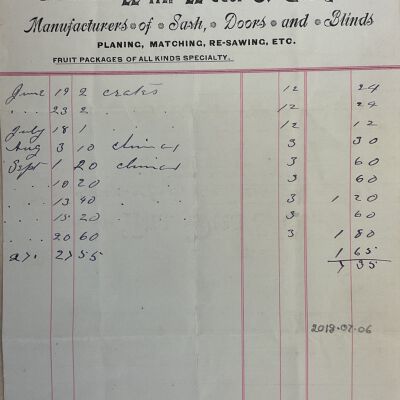 Manufacturers of Sash, Doors and Blinds
PLANING, MATCHING, RE-SAWING, ETC.
FRUIT PACKAGES OF ALL KINDS SPECIALTY.
June 19 2 crates 12 24
" " 23 2 " " 12 24
July 18 1 " " 12 12
Aug 3 10 3 30
Sept 1 20 3 60
" " 10 20 " " 3 60
" " 13 40 " " 3 1 20
" " 15 20 " " 3 60
" " 20 60 " " 3 1 80
27 55 1 65
7 35
2019-07-06